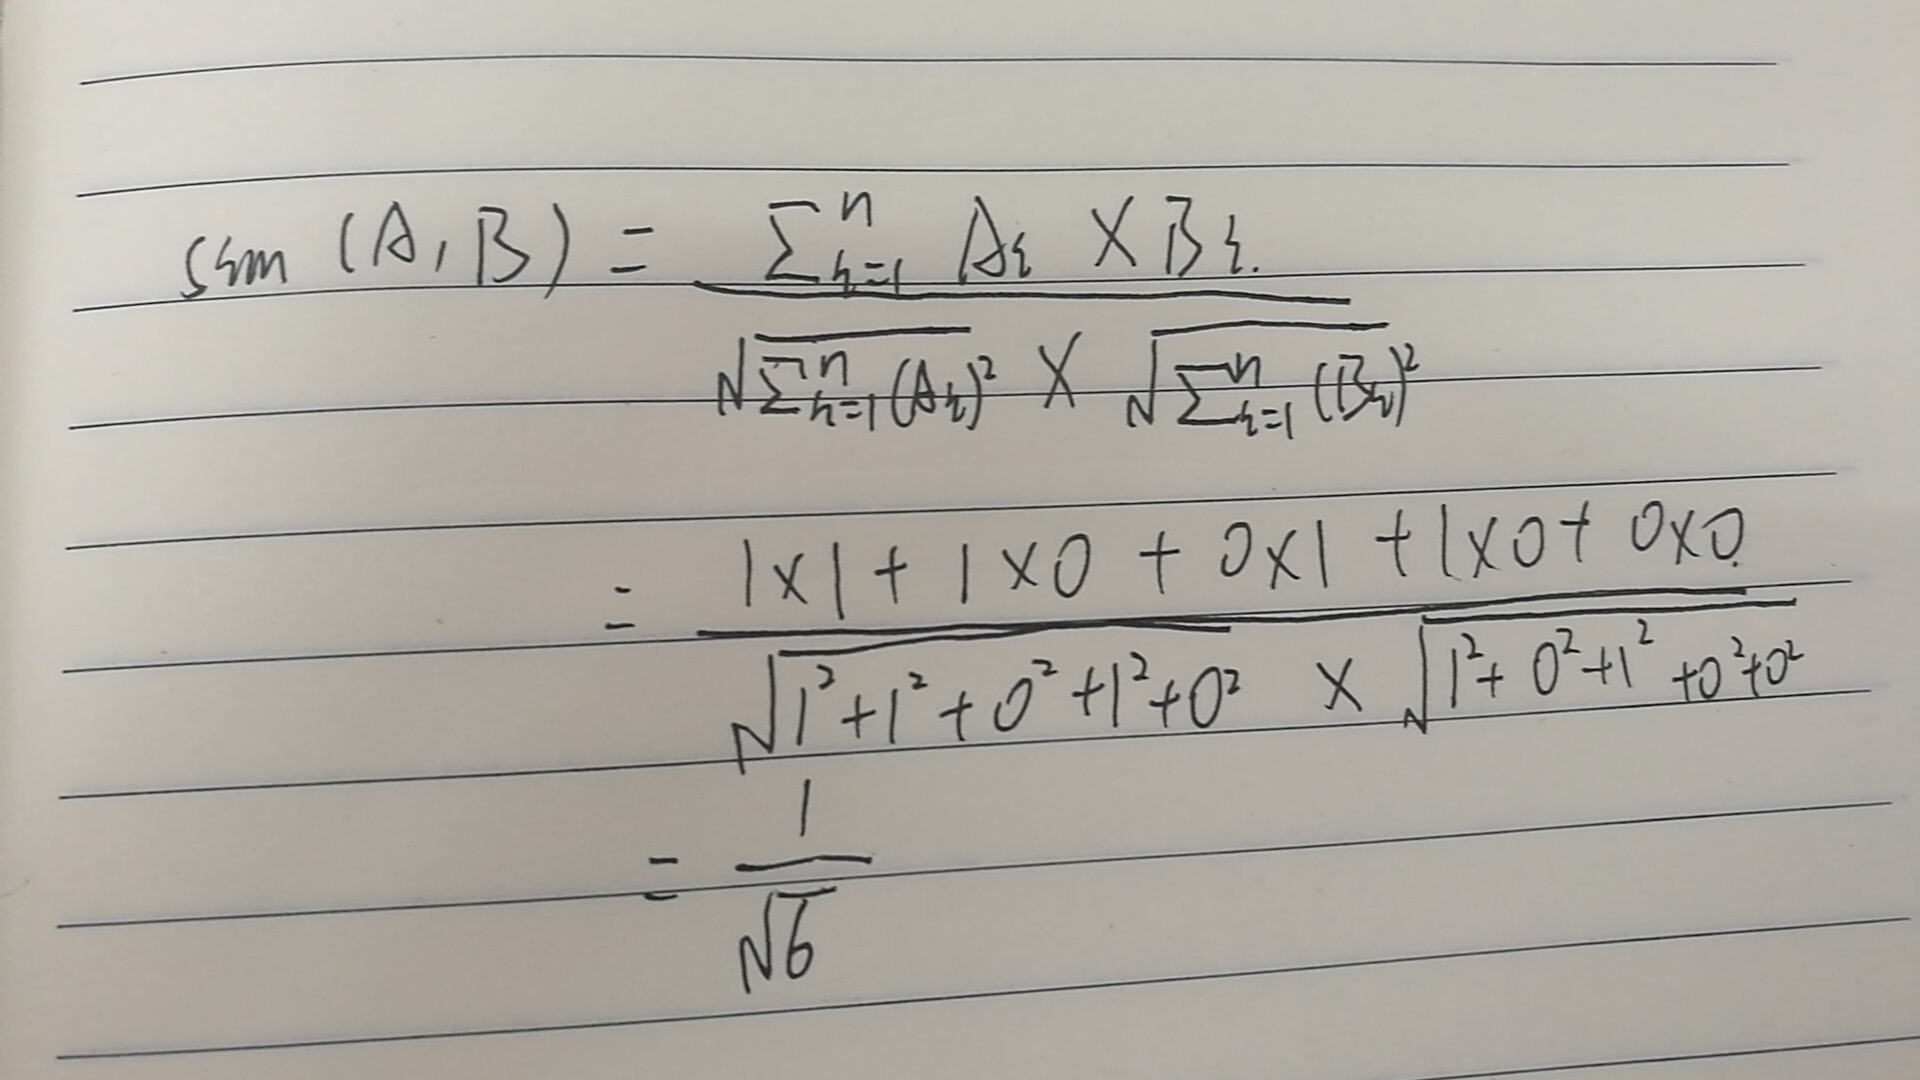 sim (A, B) = \frac{\sum_{i=1}^{n} A_i \times B_i}{\sqrt{\sum_{i=1}^{n} (A_i)^2} \times \sqrt{\sum_{i=1}^{n} (B_i)^2}}
= \frac{1 \times 1 + 1 \times 0 + 0 \times 1 + 1 \times 0 + 0 \times 0}{\sqrt{1^2 + 1^2 + 0^2 + 1^2 + 0^2} \times \sqrt{1^2 + 0^2 + 1^2 + 0^2 + 0^2}}
= \frac{1}{\sqrt{6}}